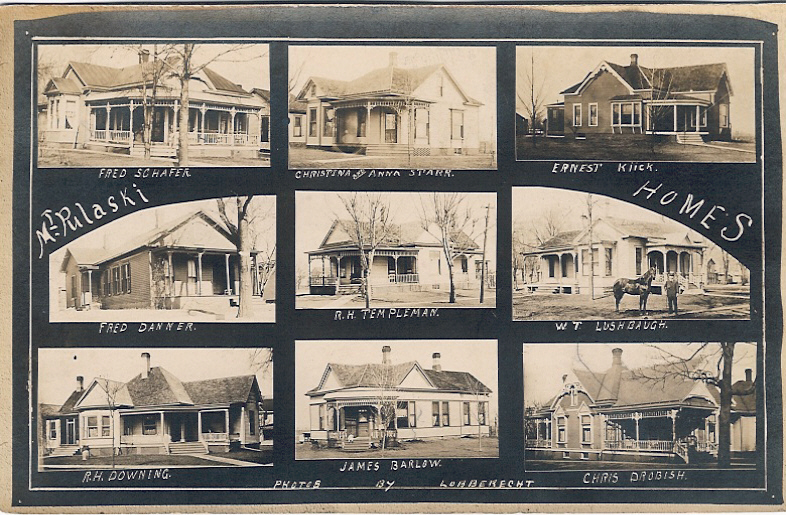 FRED SCHAFER
CHRISTINA AND ANNA STARR.
ERNEST KIICK.
MT. PULASKI
HOMES
FRED DANNER.
R.H. TEMPLEMAN.
W.T. LUSHBAUGH.
R.H. DOWNING.
JAMES BARLOW.
CHRIS DROBISH.
PHOTOS BY LOBBERECHT